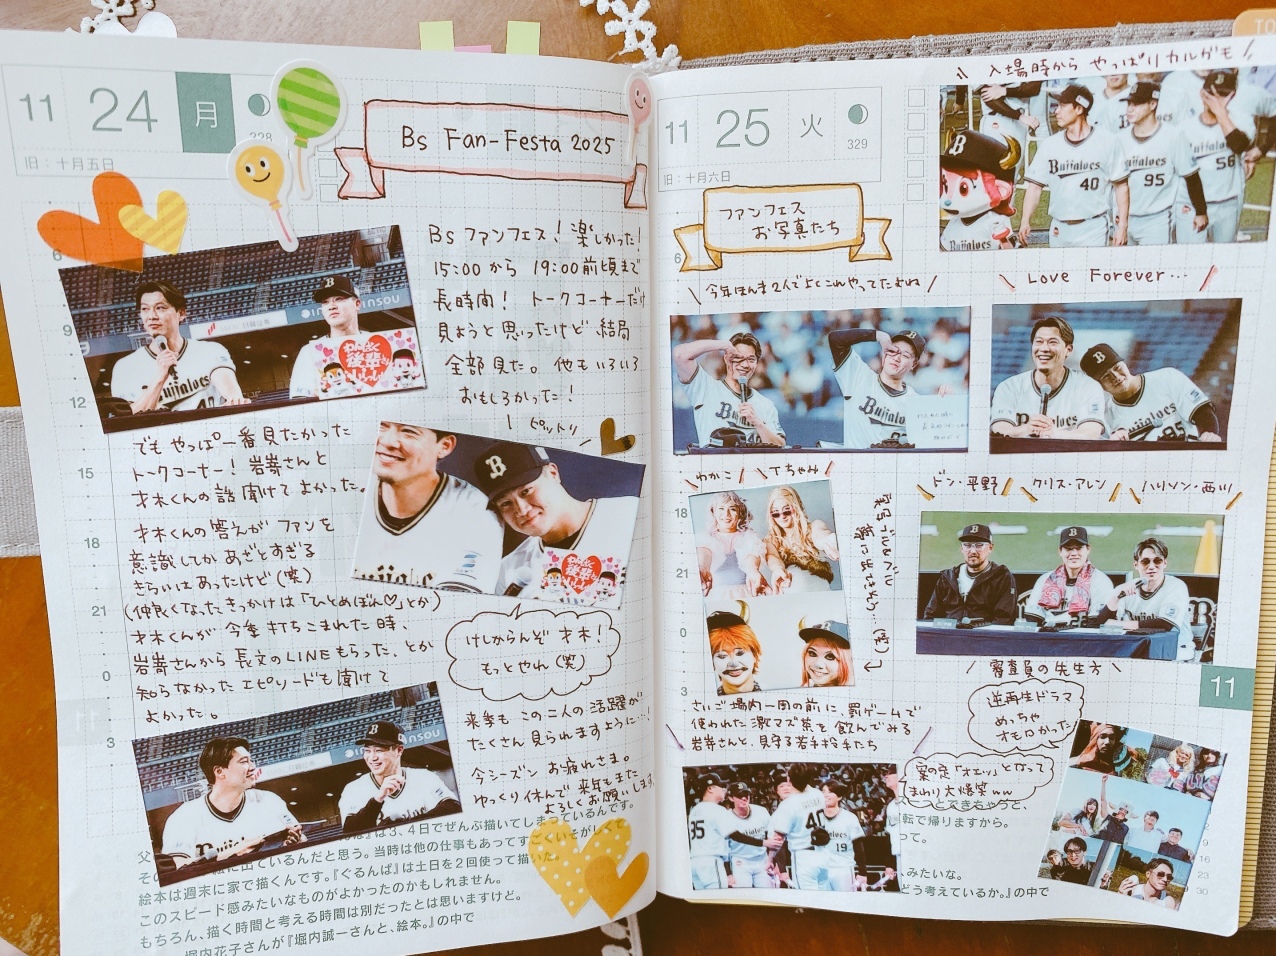 11
24
月
228
旧：十月五日
Bs Fan-Festa 2025
Bs ファンフェス！楽しかった！
15:00 から 19:00前頃まで
長時間！ トークコーナーだけ
見ようと思ったけど 結局
全部見た。他もいろいろ
おもしろかった！
ピットリ
6
9
12
15
18
21
0
3
でも やっぱ一番見たかった
トークコーナー！岩嵜さんと
才木くんの話 聞けて よかった。
才木くんの答えが ファンを
意識してか あざとすぎる
きらいはあったけど(笑)
(仲良くなったきっかけは「ひとめぼれ♡」とか)
才木くんが 今季 打ちこまれた時、
岩嵜さんから 長文のLINEもらった、とか
知らなかった エピソードも 聞けて
よかった。
けしからんぞ 才木！
もっとやれ(笑)
来季も この二人の活躍が
たくさん見られますように…！
今シーズン お疲れさま。
ゆっくり休んで 来年もまた
よろしくお願いします。
は3、4日でぜんぶ描いてしまっているんです。
出ているんだと思う。当時は他の仕事もあってすごくいそがしくて
絵本は週末に家で描くんです。『ぐるんぱ』は土日を2回使って描いた。
このスピード感みたいなものがよかったのかもしれません。
もちろん、描く時間と考える時間は別だったとは思いますけど。
堀内花子さんが『堀内誠一さんと、絵本。』の中で
11
25
火
329
旧：十月六日
ファンフェス
お写真たち
入場時から やっぱりカルガモ
Buffaloes
40
Buffaloes
95
56
今年ほんま2人でよくこれやってたよね
Love Forever…
わかこ
Tちゃみ
ドン・平野
クリス・アレン
ハリソン・西川
審査員の先生方
逆再生ドラマ
めっちゃ
オモロかった
さいご 場内一周の前に 罰ゲームで
使われた 激マズ茶を 飲んでみる
岩嵜さんと、見守る若手投手たち
案の定「オエッ」となって
まわり大爆笑ww
6
18
21
0
3
11
転で帰りますから。
って。
みたいな。
どう考えているか。』の中で